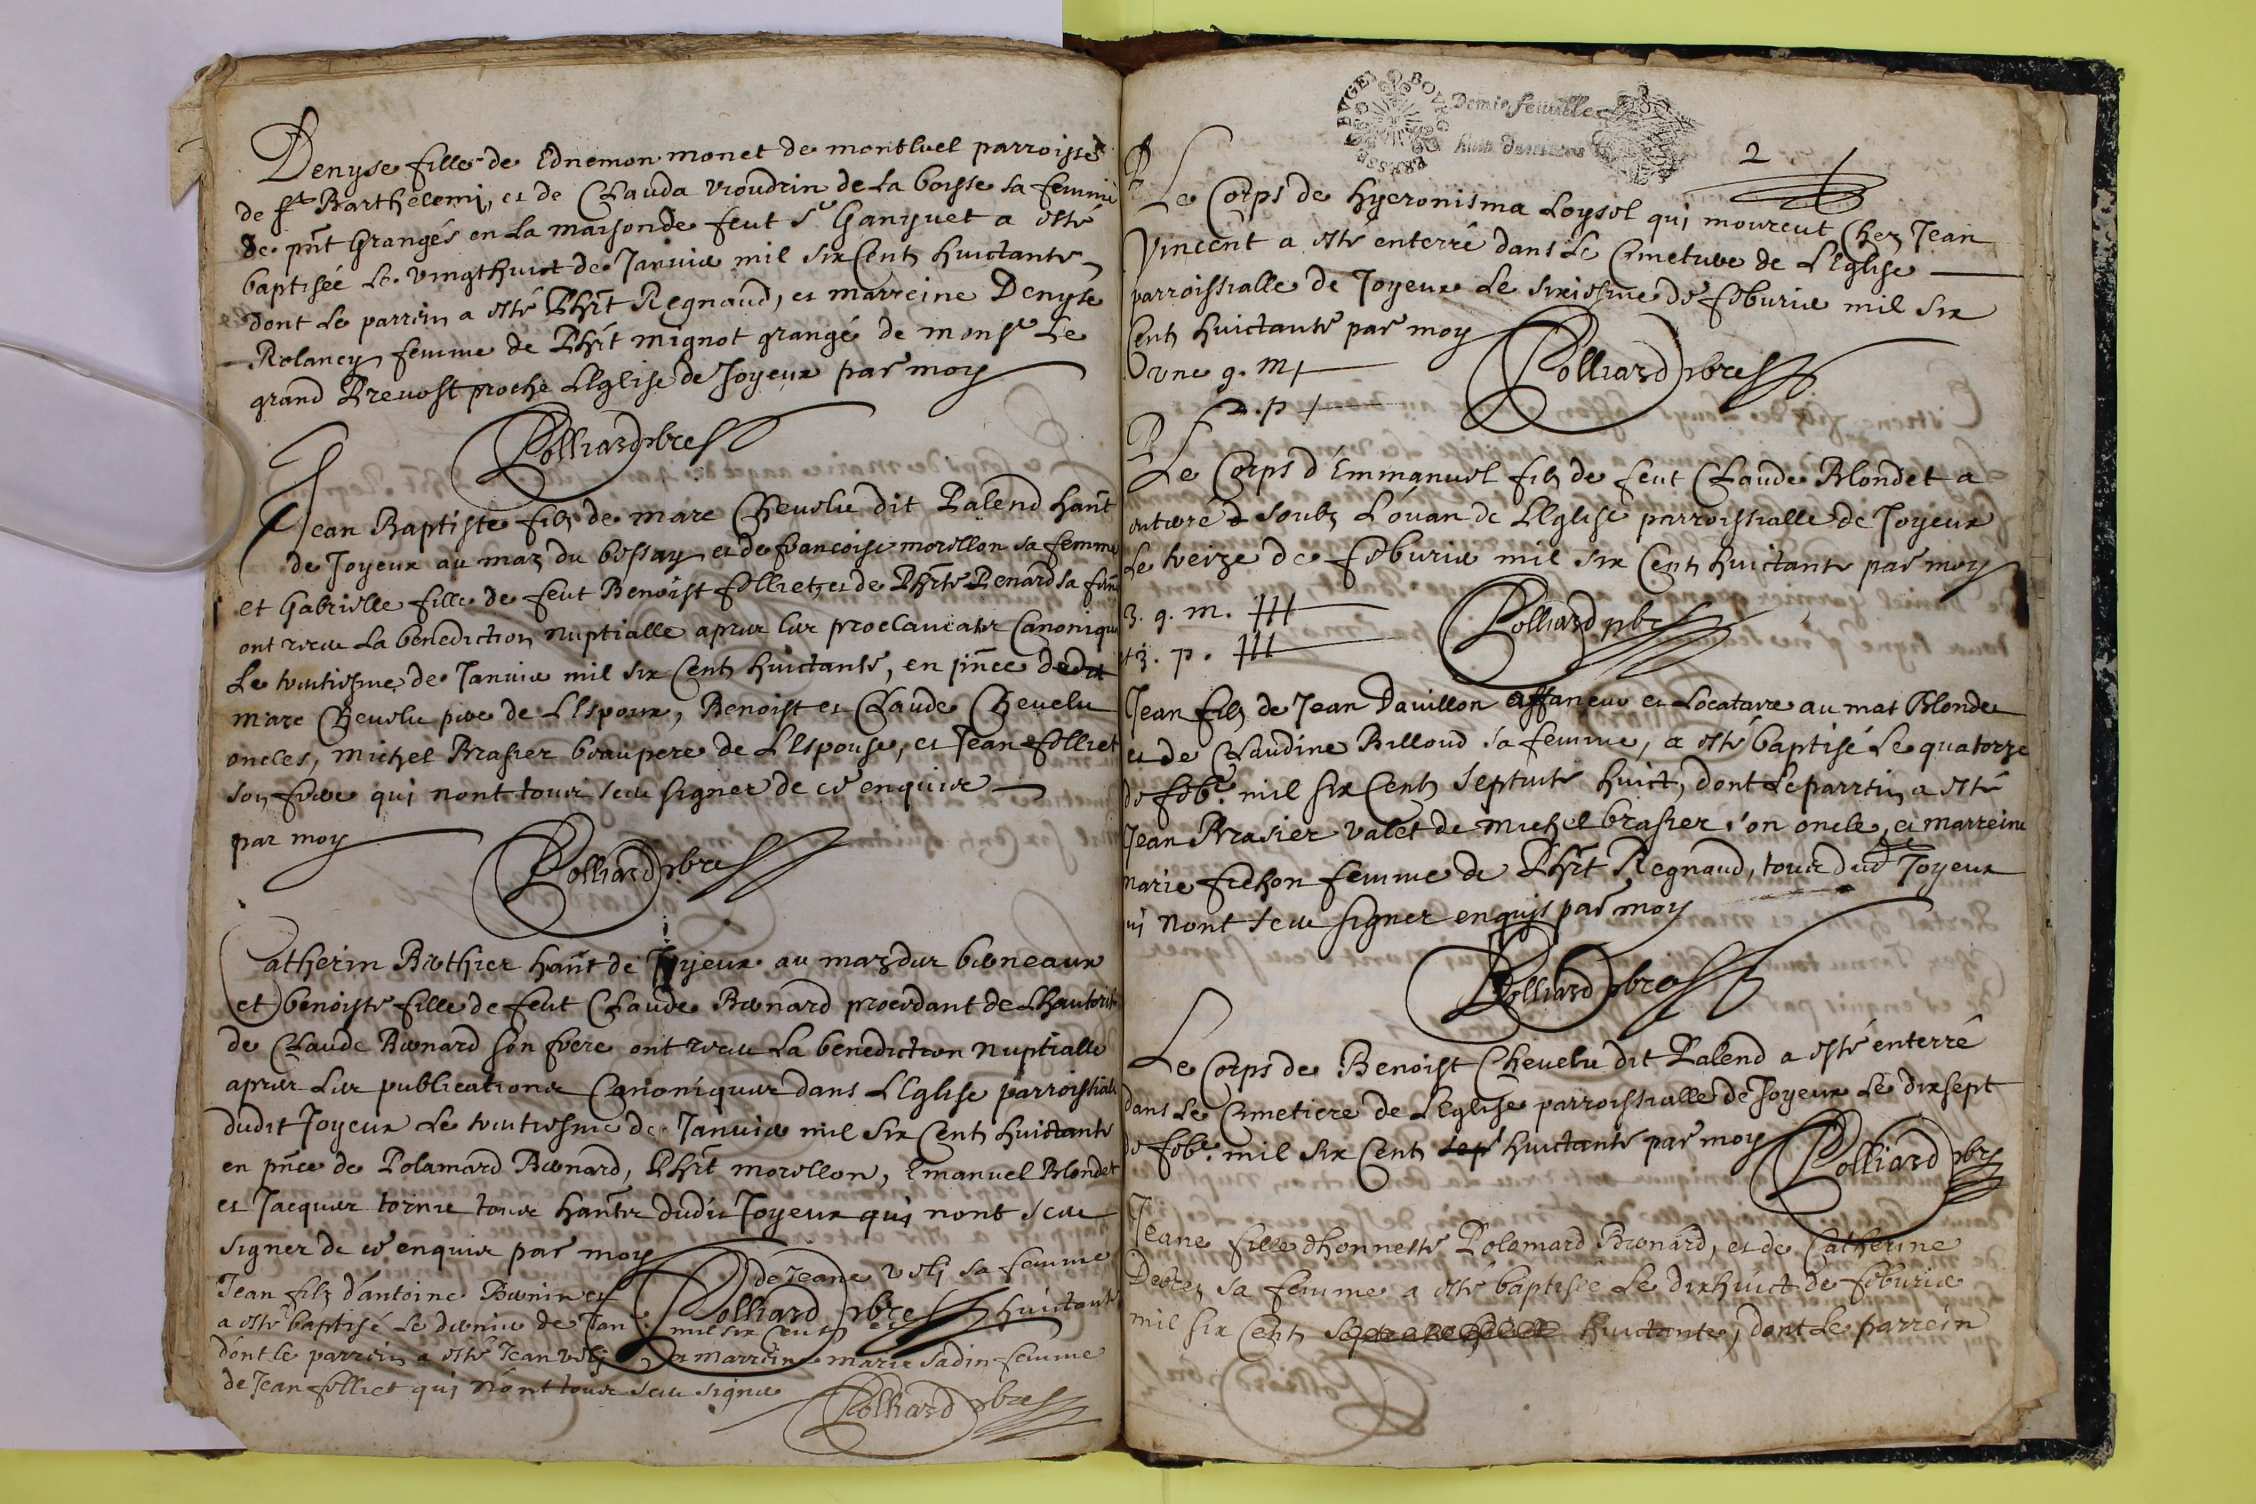 Denyse fille de Ednemon monet de montluel parroisse
de st Barthelemi, et de Clauda vioudrin de la boisse sa femme
de pnt Grangés en la maison de feut sr Ganyuet a esté
baptisée le vingthuict de Januier mil six Cents huictante
dont le parrein a esté Phit Regnaud, et marreine Denyse
Rolancy femme de Phit mignot grangé de monsr Le
grand Preuost proche LEglise de Joyeux par moy
Polliard pbre
Jean Baptiste filz de marc Cheuelu dit Palend hant
de Joyeux au mas du bessay, et de francoise morellon sa femme
et Gabrielle fille de feut Benoist folliet, et de Phte Renard sa fem
ont receu La benediction nuptialle apres les proclamatons Canoniqu
Le trentiesme de Januier mil six Cents huictante, en pnce dedit
marc Cheuelu pere de LEspoux, Benoist et Claude Cheuelu
oncles, michel Brasier beaupere de LEspouse, et Jean folliet
son frere qui nont tous sceu signer de ce enquis
par moy
Polliard pbre
Catherin Berthier hant de Joyeux au mas des berneaux
et benoiste fille de feut Claude Bernard procedant de Lhautorit
de Claude Bernard son frere ont receu La benediction nuptialle
apres Les publications Canoniques dans LEglise parroissiale
dudit Joyeux Le trentiesme de Januier mil six Cents huictante
en pnce de Polamard Bernard, Phit morellon, Emanuel Blondet
et Jacques tornie tous hants dudit Joyeux qui nont sceu
signer de ce enquis par moy
Polliard pbre
Jean filz d'antoine Bernin et de Jeane velj sa femme
a esté baptisé Le dernier de Jan: mil six Cents et huictante
dont le parrein a esté Jean velj et marreine marie sadin femme
de Jean folliet qui n'ont tous sceu signer
Polliard pbre
BOVRG BRESSE BVGEY
Demie feuille
huit deniers
2
Le Corps de hyeronisma Loysel qui mourut Chez Jean
Vincent a esté enterré dans le Cimetiere de LEglise
parroissialle de Joyeux Le sixiesme de feburier mil six
Cents huictante par moy
Polliard pbre
une g. m
2. p
Le Corps d'Emmanuel filz de feut Claude Blondet a
enterré soubz L'ouan de LEglise parroissialle de Joyeux
Le treize de feburier mil six Cents huictante par moy
Polliard pbre
3. g. m.
et 3. p.
Jean filz de Jean Dauillon affaneur et Locataire au mas Blonde
et de Claudine Billoud sa femme, a esté baptisé Le quatorze
de febr. mil six Cents septante huict, dont le parrein a esté
Jean Brasier valet de michel brasier son oncle, et marreine
marie fichon femme de Phit Regnaud, tous dud Joyeux
ui nont sceu signer enquis par moy
Polliard pbre
Le Corps de Benoist Cheuelu dit Palend a esté enterré
dans Le Cimetiere de LEglise parroissialle de Joyeux Le dixsept
de febr. mil six Cents huictante par moy
Polliard pbre
Jeane fille dhonneste Polamard Bernard, et de Catherine
sa femme a esté baptisée Le dixhuict de feburier
mil six Cents huictante, dont Le parrein